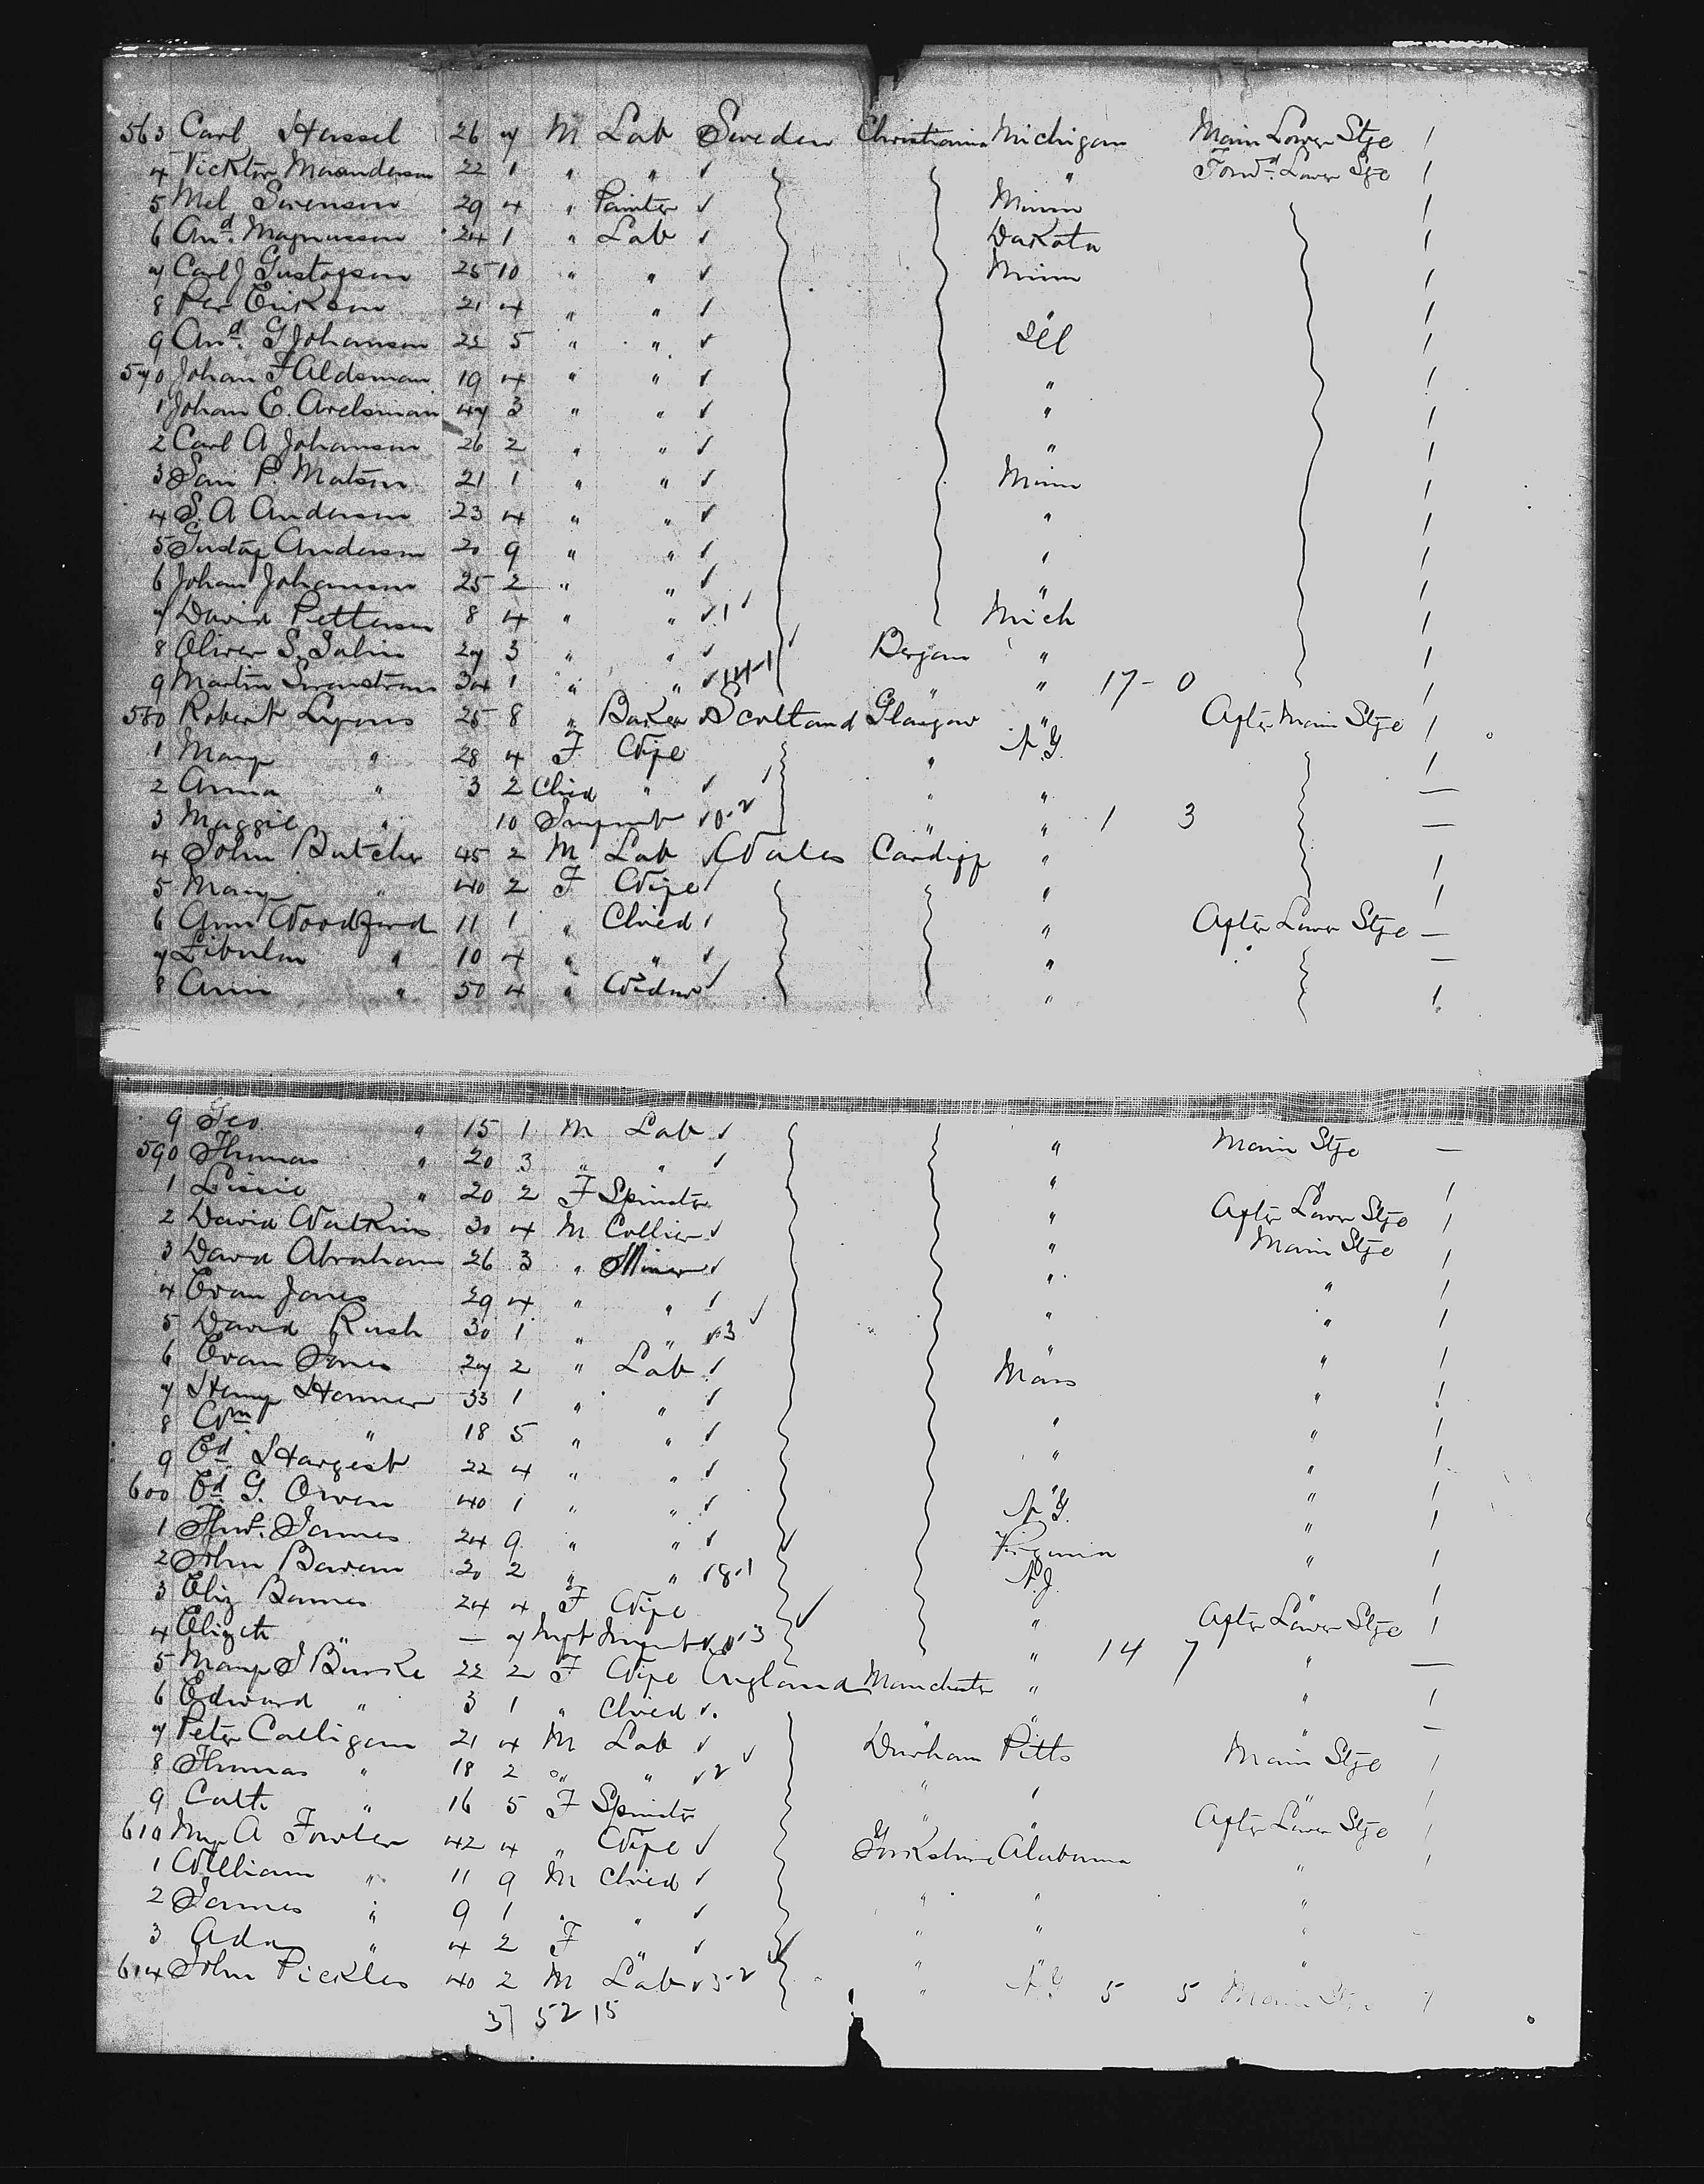 563 Carl Hassel 26 7 M Lab Sweden Christiania Michigan Main Lower Stge /
4 Vicktor Maanderson 22 1 " " " Forwd. Lower Stge /
5 Mel Swenson 29 4 " Painter Minn /
6 And. Magnusson 24 1 " Lab Dakota /
7 Carl J Gustafson 25 10 " " Minn /
8 Per Erikson 21 4 " " " /
9 And. G Johanson 25 5 " " Ill /
570 Johan F Aldsman 19 4 " " " /
1 Johan E. Axelsman 47 3 " " " /
2 Carl A Johanson 26 2 " " " /
3 Sam P. Matson 21 1 " " Minn /
4 S. A Anderson 23 4 " " " /
5 Gustaf Anderson 20 9 " " " /
6 Johan Johanson 25 2 " " " /
7 David Petterson 8 4 " " 1 Mich /
8 Oliver S. Salin 27 3 " " Bergan " /
9 Martin Swanstrom 34 1 " " 14-1 " " 17 - 0 /
580 Robert Lyons 25 8 " Baker Scotland Glasgow " After Main Stge /
1 Mary " 28 4 F Wife " N.Y. /
2 Anna " 3 2 Child " " " —
3 Maggie " 10 Infant 0-2 " " 1 3 —
4 John Butcher 45 2 M Lab Wales Cardiff " /
5 Mary " 40 2 F Wife " /
6 Ann Woodford 11 1 " Child " After Lower Stge —
7 " 10 4 " " " —
8 Ann " 50 4 " Widow " /
9 Geo " 15 1 M Lab " Main Stge —
590 Thomas " 20 3 " " " " /
1 Lissie " 20 2 F Spinster " After Lower Stge /
2 David Watkins 30 4 M Collier " Main Stge /
3 David Abraham 26 3 " Miner " " /
4 Evan Jones 29 4 " " " " /
5 David Rush 30 1 " " 3 " " /
6 Evan Jones 27 2 " Lab Mass " /
7 Henry Hanmer 33 1 " " " " /
8 Wm " 18 5 " " " " /
9 Ed Hargest 22 4 " " " " /
600 Ed G. Owen 40 1 " " N.Y. " /
1 Thos. James 24 9 " " Virginia " /
2 John Bowen 20 2 " " 8-1 N.J. " /
3 Eliz Barnes 24 4 F Wife " After Lower Stge /
4 Elizth " — 7 Infant 3 " 14 7 " —
5 Mary J Burke 22 2 F Wife England Manchester " " /
6 Edward " 3 1 " Child " " " —
7 Peter Calligan 21 4 M Lab Durham Pitts Main Stge /
8 Thomas " 18 2 " " 2 " " " /
9 Cath " 16 5 F Spinster " " After Lower Stge /
610 My A Fowler 42 4 " Wife Yorkshire Alabama " /
1 William " 11 9 M Child " " "
2 James " 9 1 " " " " "
3 Ada " 4 2 F " " " "
614 John Pickles 40 2 M Lab 3-2 " N.Y 5 5 Main Stge /
37 52 15